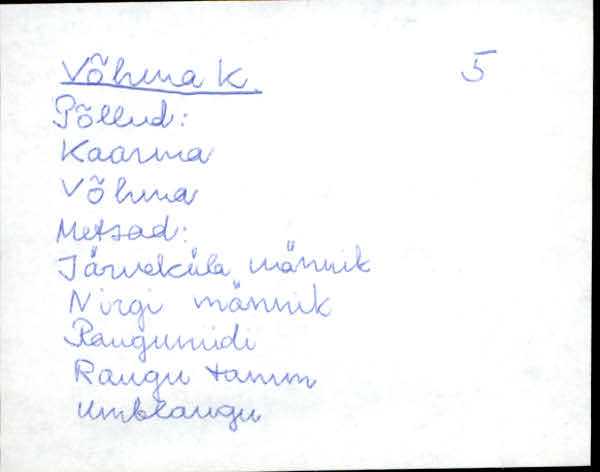 Võhma k. 5
Põllud:
Kaarma
Võhma
Metsad:
Järveküla männik
Nirgi männik
Raugumidi
Raugu tamm
Umblaugu